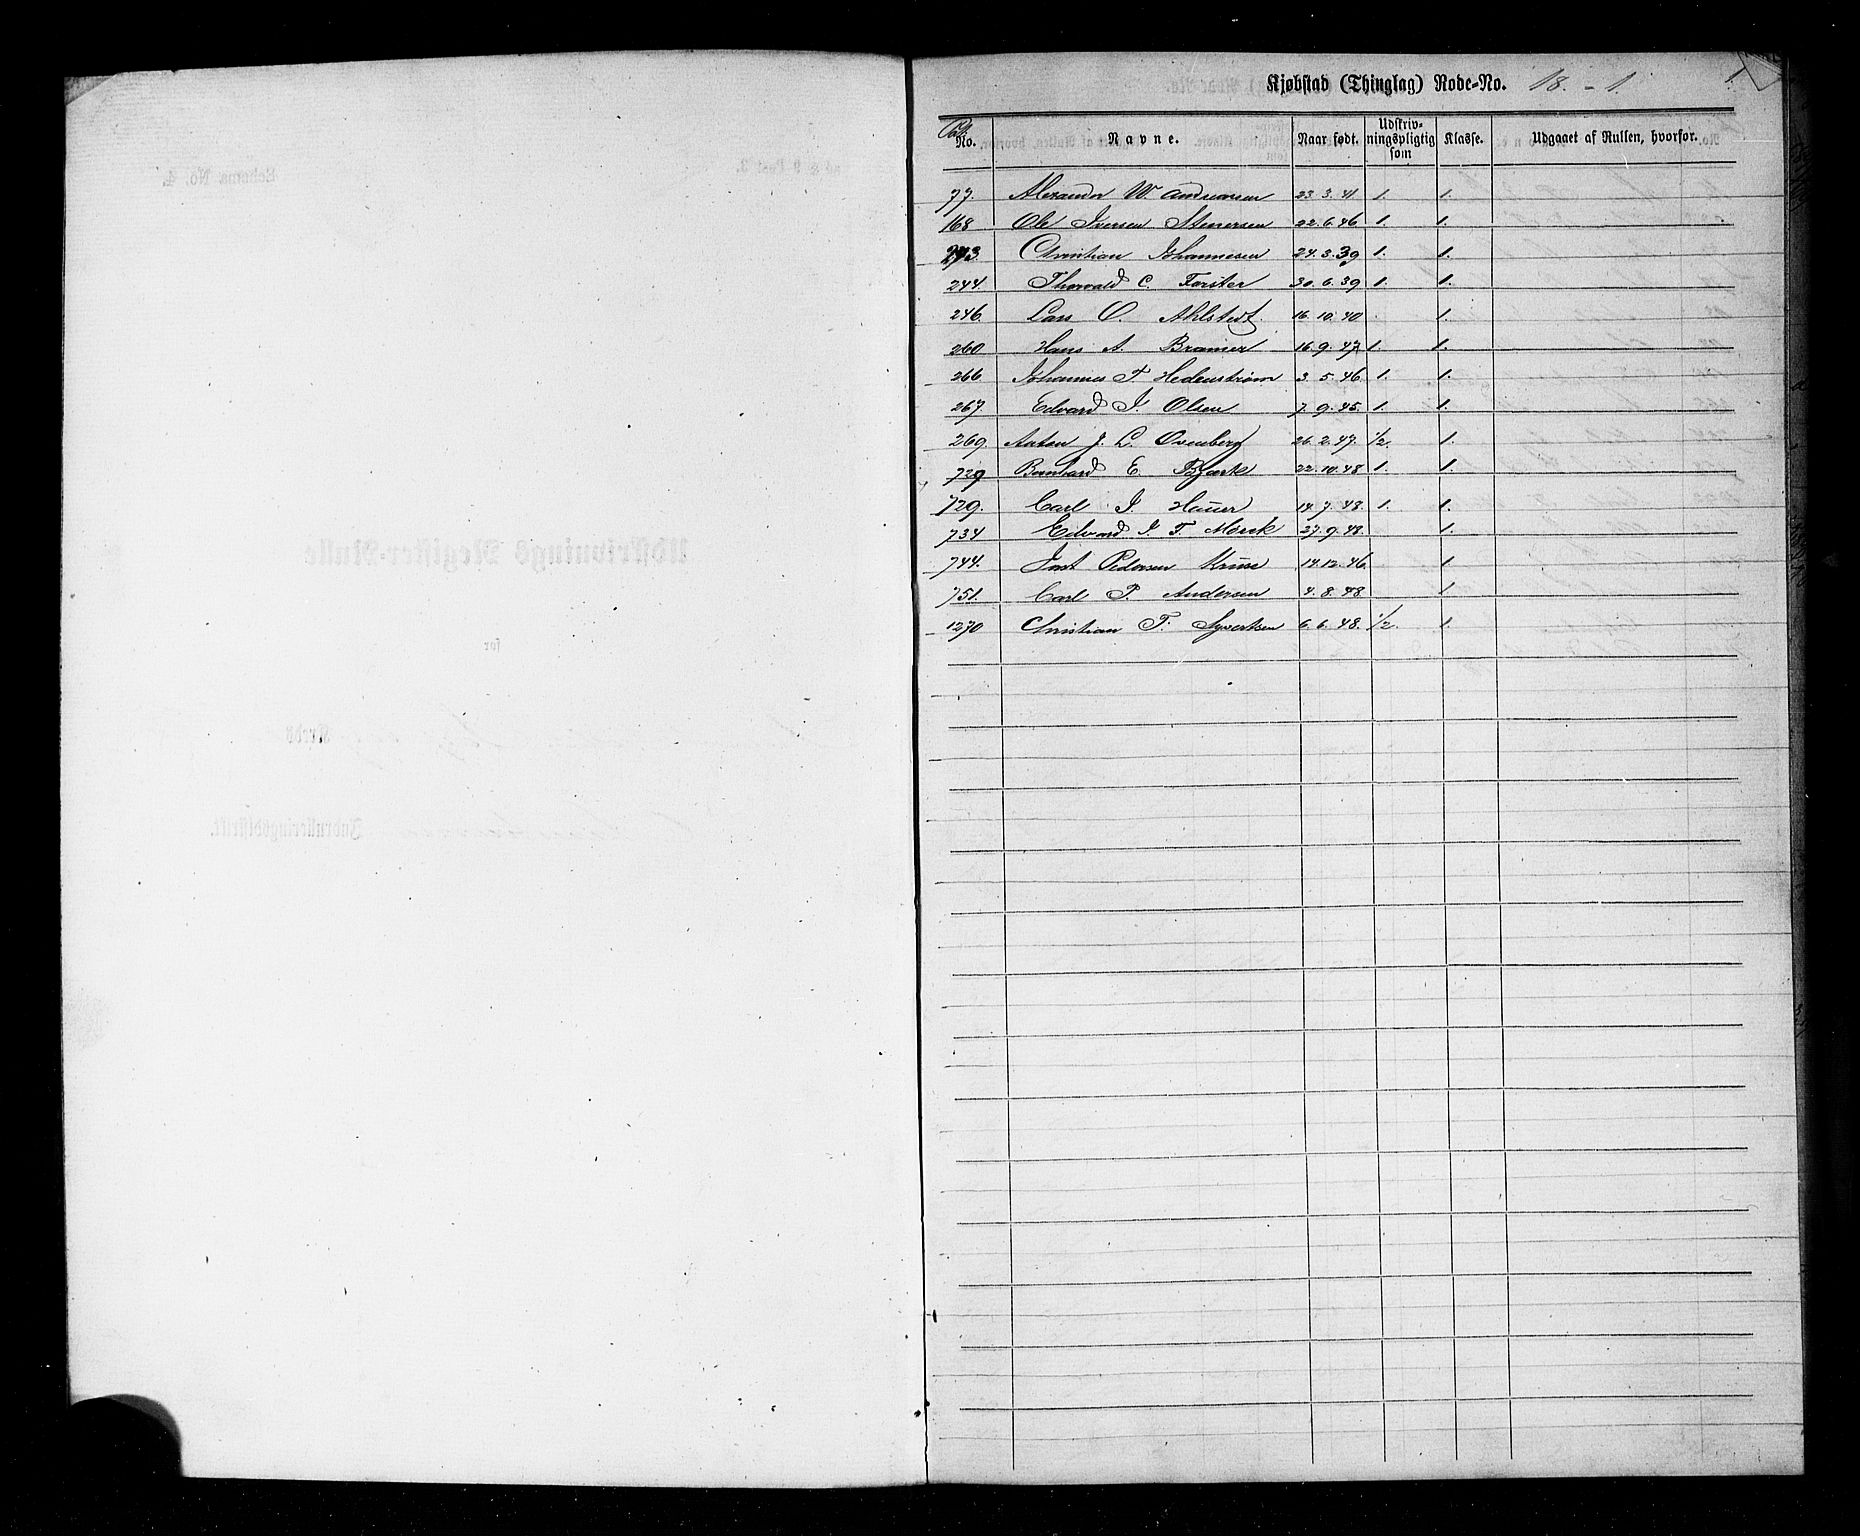 Kjøbstad (Thinglag) Rode-No. 18. - 1. 1.
No. Navne. Naar født. Udskriv-ningspligtig som Klasse. Udgaaet af Rullen, hvorfor.
77. Alexander W. Andreassen 23. 3. 41 1. 1.
168 Ole Iversen Stenersen 22. 6. 46 1. 1.
243. Christian Johannesen 24. 3. 39 1. 1.
244. Thorvald C. Forster 30. 6. 39 1. 1.
246. Lars O. Ahlstedt 16. 10. 40 1.
260 Hans A. Bramer 16. 9. 47 1. 1.
266 Johannes T. Hedenstrøm 3. 5. 46. 1. 1.
267. Edvard I. Olsen 7. 9. 45. 1. 1.
269. Anton J. L. Ovenberg 26. 2. 47. 1/2. 1.
729 Bernhard E. Bjørk 22. 10. 48 1. 1.
729. Carl I. Hauer 14. 7. 48. 1. 1.
734 Edvard I. T. Mörck 27. 9. 48. 1.
744. Jost Pedersen Kruse 14. 12. 46 1
751. Carl P. Andersen 4. 8. 48. 1
1270 Christian T. Syvertsen 6. 6. 48. 1/2. 1.